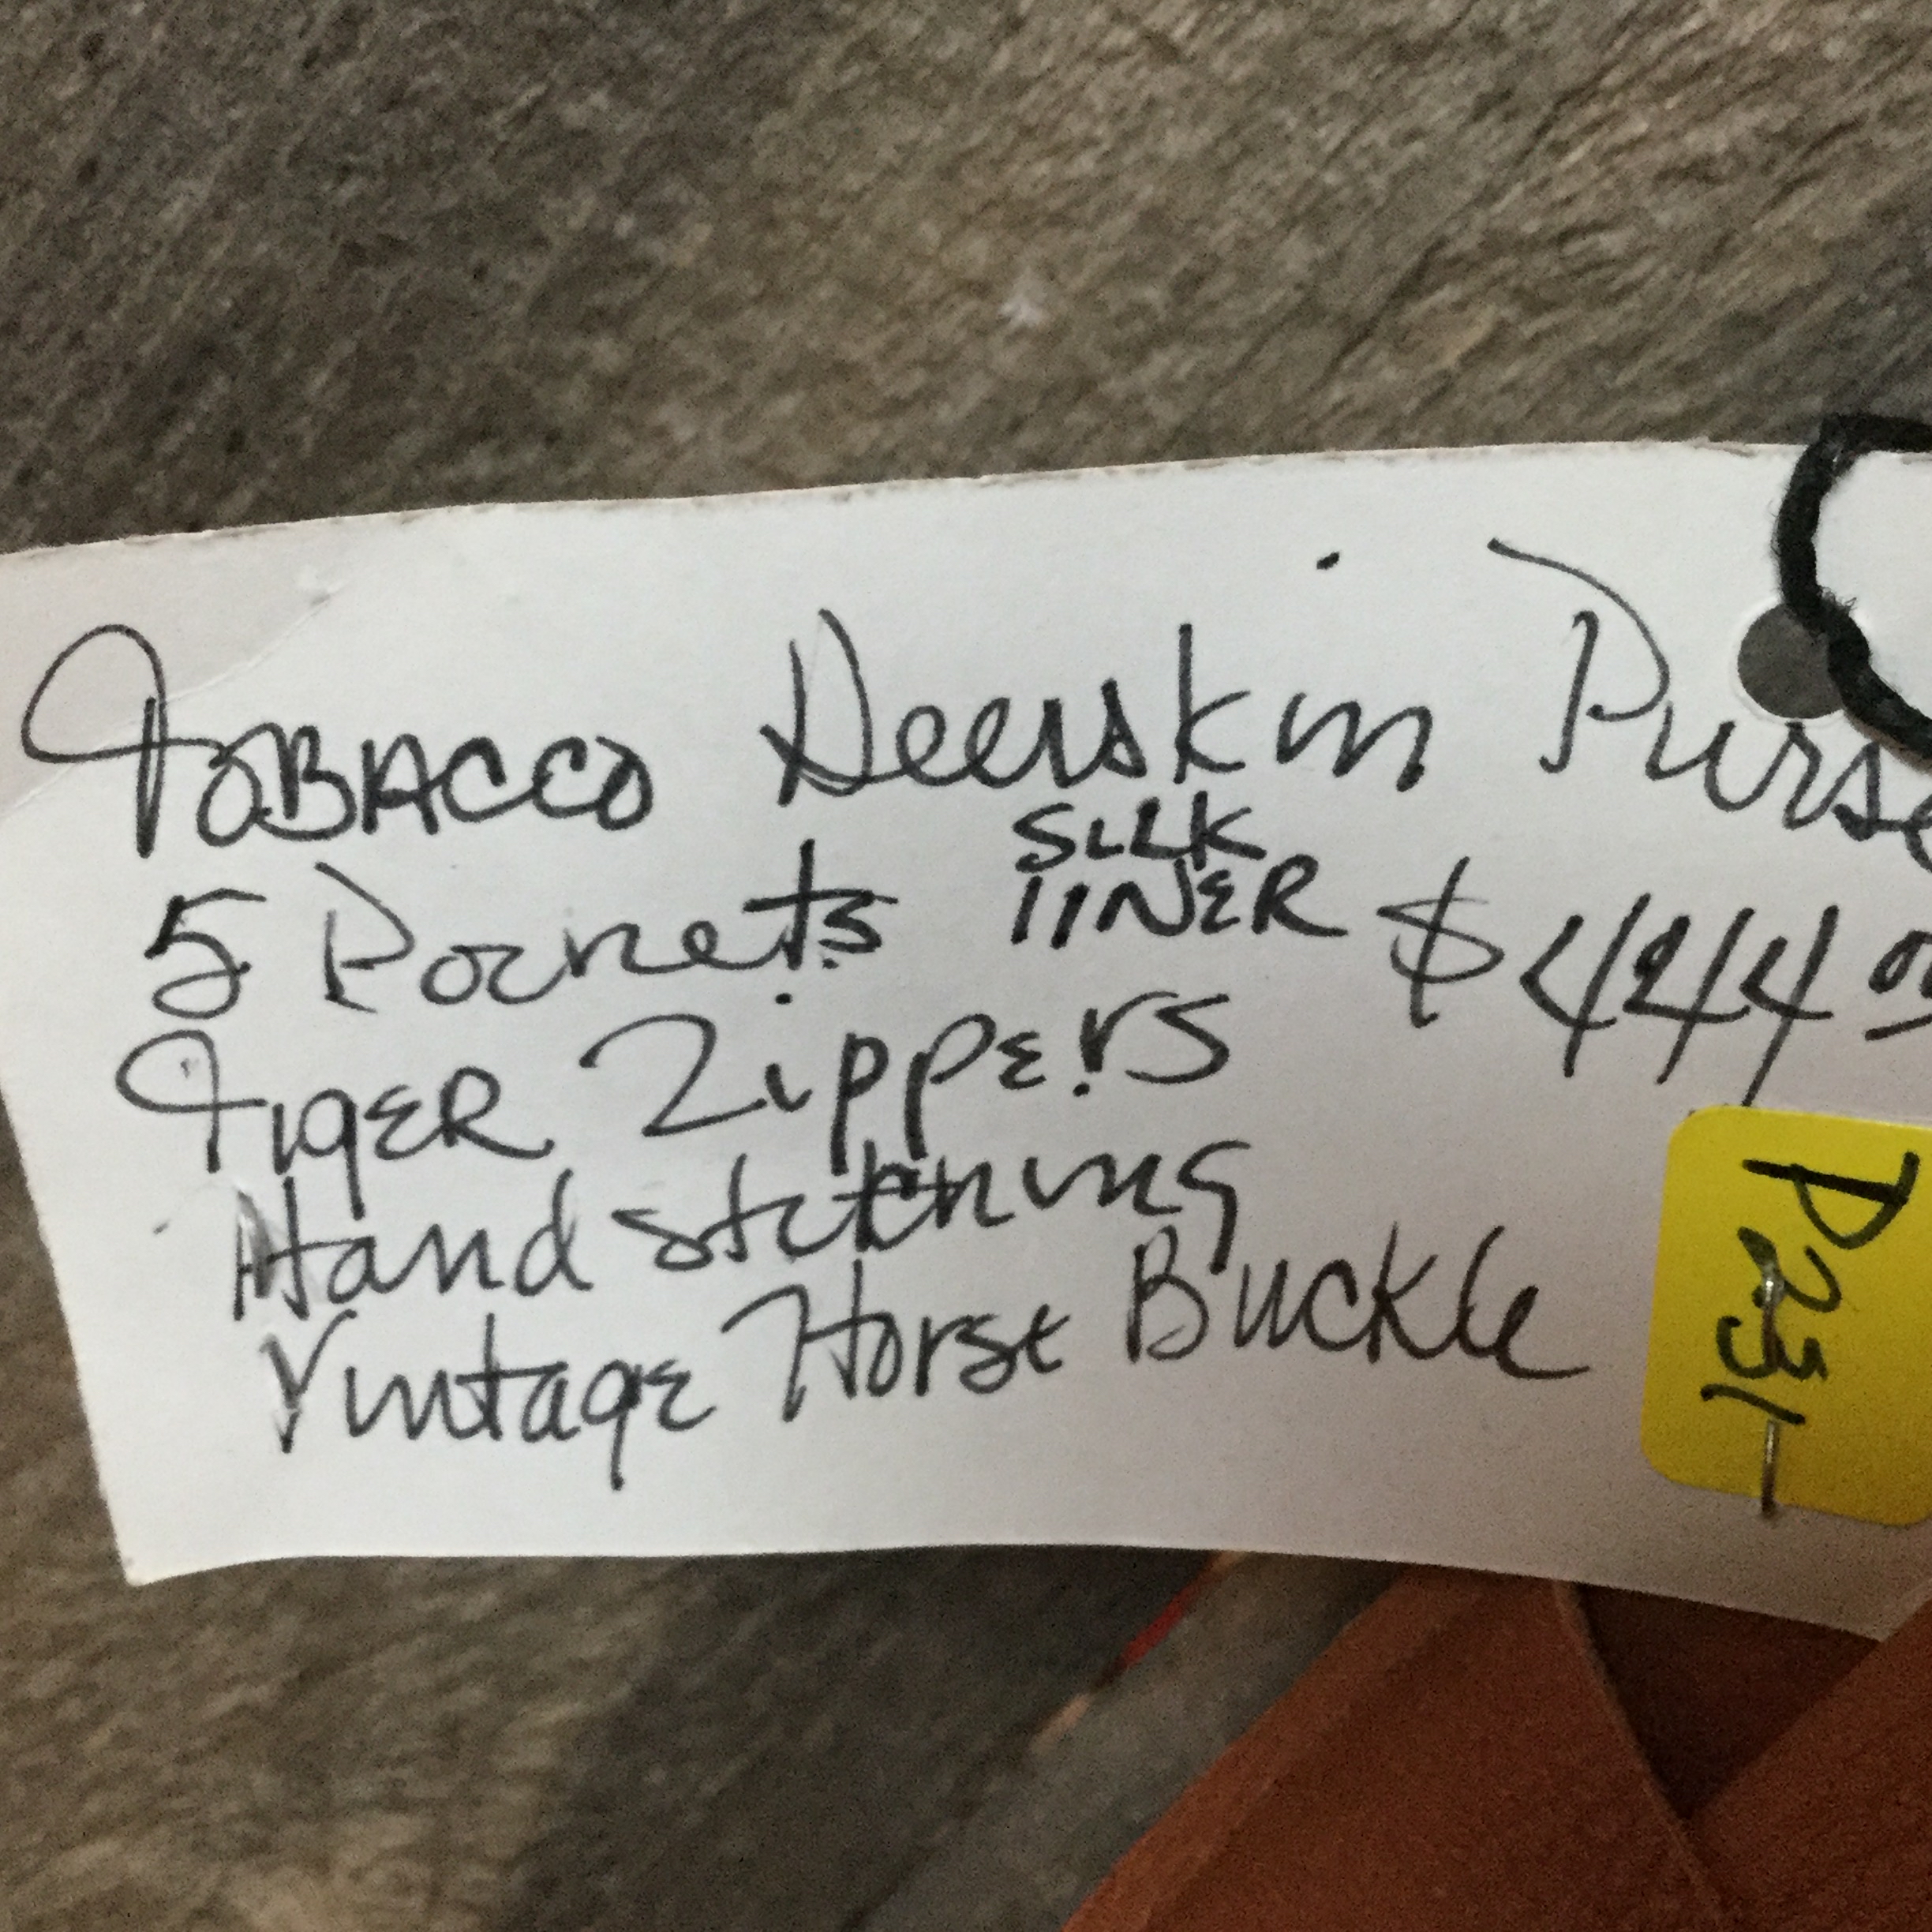 Tobacco Deerskin Purse
5 Pockets SILK
LINER $444 00
Tiger Zippers
Hand stitching
Vintage Horse Buckle
P231